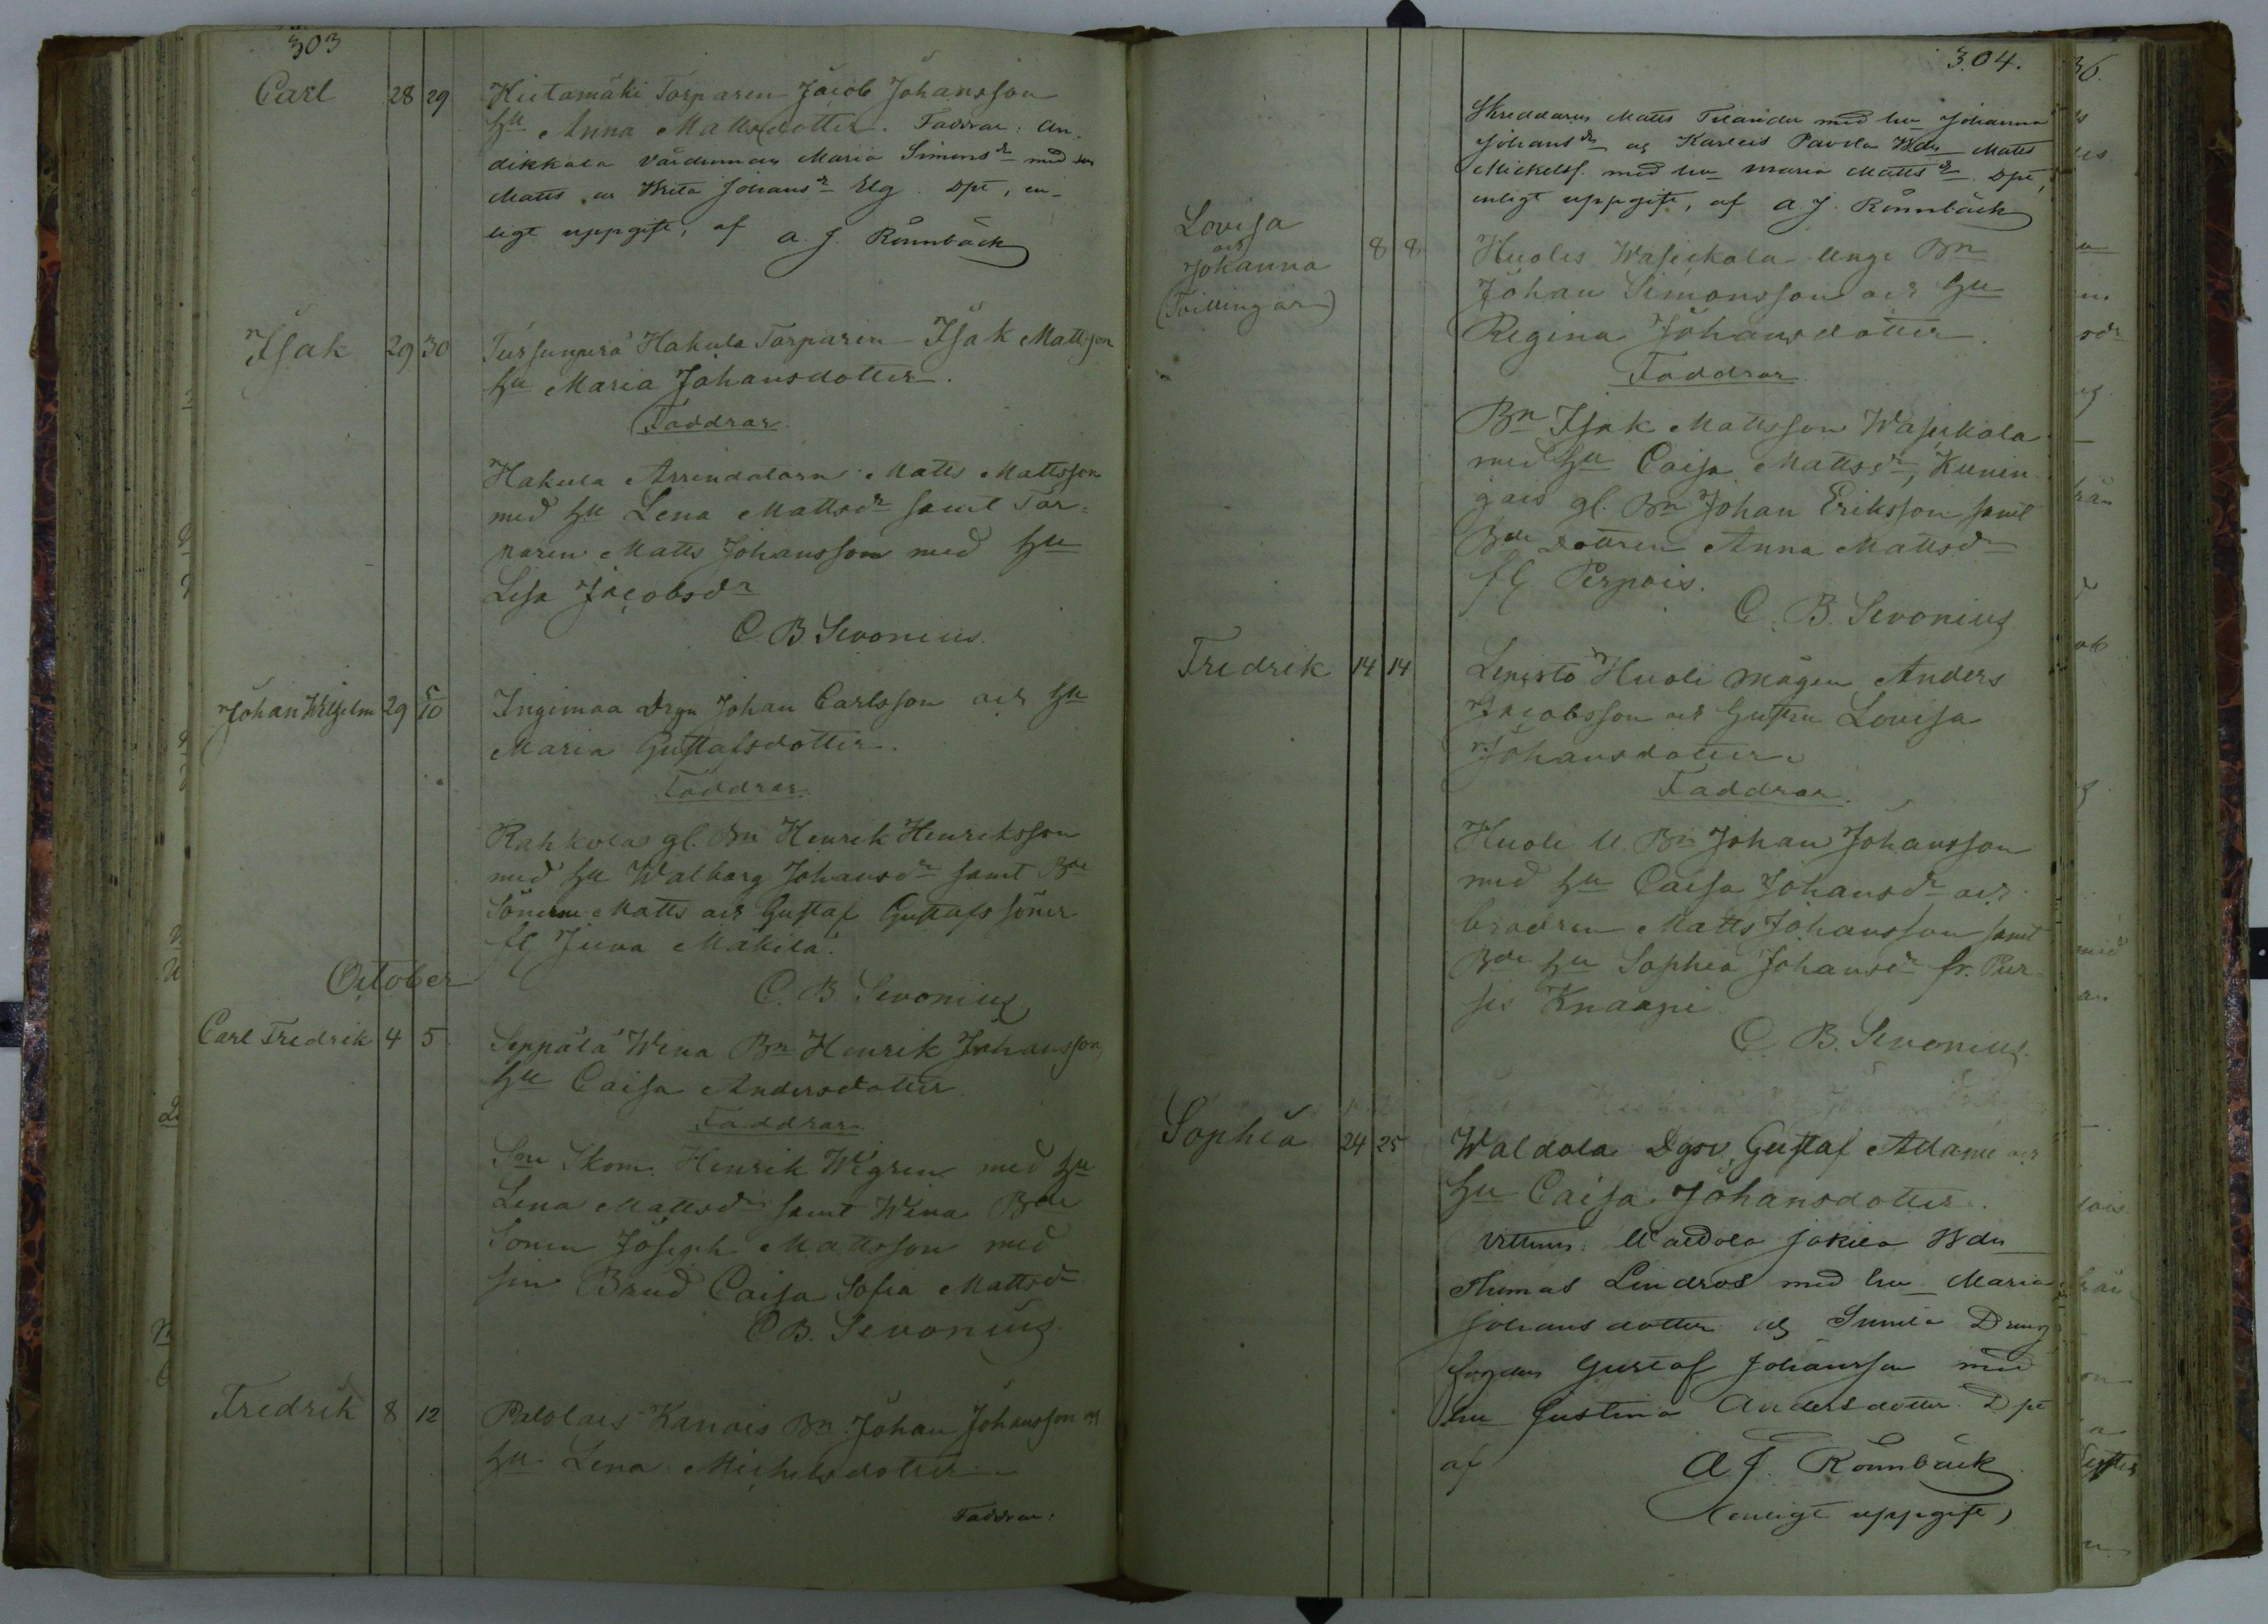 303
Carl 28 29 Hiitamäki Torparen Jacob Johansson
hu Anna Mattsdotter. Faddrar: An-
dikkala Maria Simonsdr med
Matts Johansdr Elg. Dpt, en-
ligt uppgift, af A. J. Rönnbäck
Isak 29 30 Hakula Torparen Isak Mattsson
hu Maria Johansdotter.
Faddrar.
Hakula Arrendatorn Matts Mattsson
med hu Lena Mattsdr samt Tor-
paren Matts Johansson med hu
Lisa Jacobsdr
C. B. Sevonius.
Johan Wilhelm 29 5/10 Ingimaa Drgn Johan Carlsson och hu
Maria Gustafsdotter.
Faddrar.
Rahkola gl. Bn Henrik Henriksson
med hu Walborg Johansdr samt Bde
Sönerne Matts och Gustaf Gustafssöner
fr Juva Mäkilä.
C. B. Sevonius
October
Carl Fredrik 4 5 Seppälä Wina Bn Henrik Johansson
hu Caisa Andersdotter
Faddrar
Sn Skom. Henrik Wigren med hu
Lena Mattsdr samt Wina Bde
Sonen Joseph Mattsson med
sin Brud Caisa Sofia Mattsdr
C. B. Sevonius.
Fredrik 8 12 Palolais Kanais Bn Johan Johansson och
hu Lena Michelsdotter
Faddrar:
304.
Skreddaren Matts Telander med hu Johanna
Johansdr och Karleis Pavola Matts
Mickelss. med hu Maria Mattsdr. Dpt,
enligt uppgift, af A. J. Rönnbäck
Lovisa
och
Johanna
(Tvillingar)
8 8 Huolis Wasickala unge Bn
Johan Simonsson och hu
Regina Johansdotter.
Faddrar
Bn Isak Mattsson Wasickala
med hu Caisa Mattsdr, Kunin-
gais gl. Bn Johan Eriksson samt
Bde Dottren Anna Mattsdr
fr Perpois.
C. B. Sevonius
Fredrik 14 14 Lepistö Huoli mågen Anders
Jacobsson och hustru Lovisa
Johansdotter.
Faddrar.
Huoli U. Bn Johan Johansson
med hu Caisa Johansdr och
brodren Matts Johansson samt
Bde hu Sophia Johansdr fr. Pur-
sis Knaapi
C. B. Sevonius.
Sophia 24 25 Waldola Dgsv. Gustaf Adami och
hu Caisa Johansdotter.
Vittnen: Waldola Jakila
Thomas Lindros med hu Maria
Johansdotter och Sunila Dreng
fogden Gustaf Johansson med
hu Justina Andersdotter. Dpt
af A. J. Rönnbäck
(enligt uppgift)